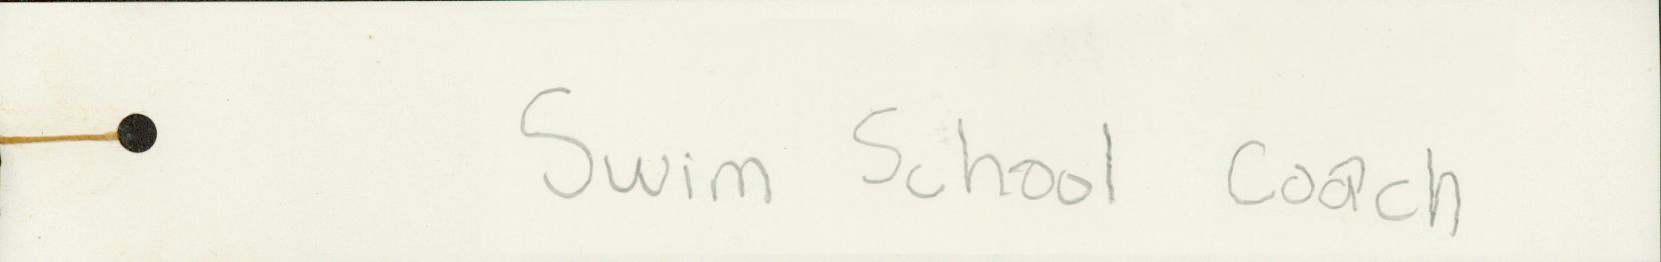 Swim School Coach